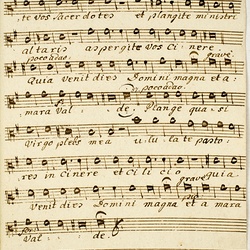 te vos sacerdotes et plangite ministri
altaris aspergite vos cinere
poco adag.
grave
Quia venit dies Domini magna et a:
poco adag.
mara val de. Plange quasi
virgo plebs mea ululate pasto:
res in cinere et cilicio quia
grave
Venit dies Domini magna et amara
Val de.